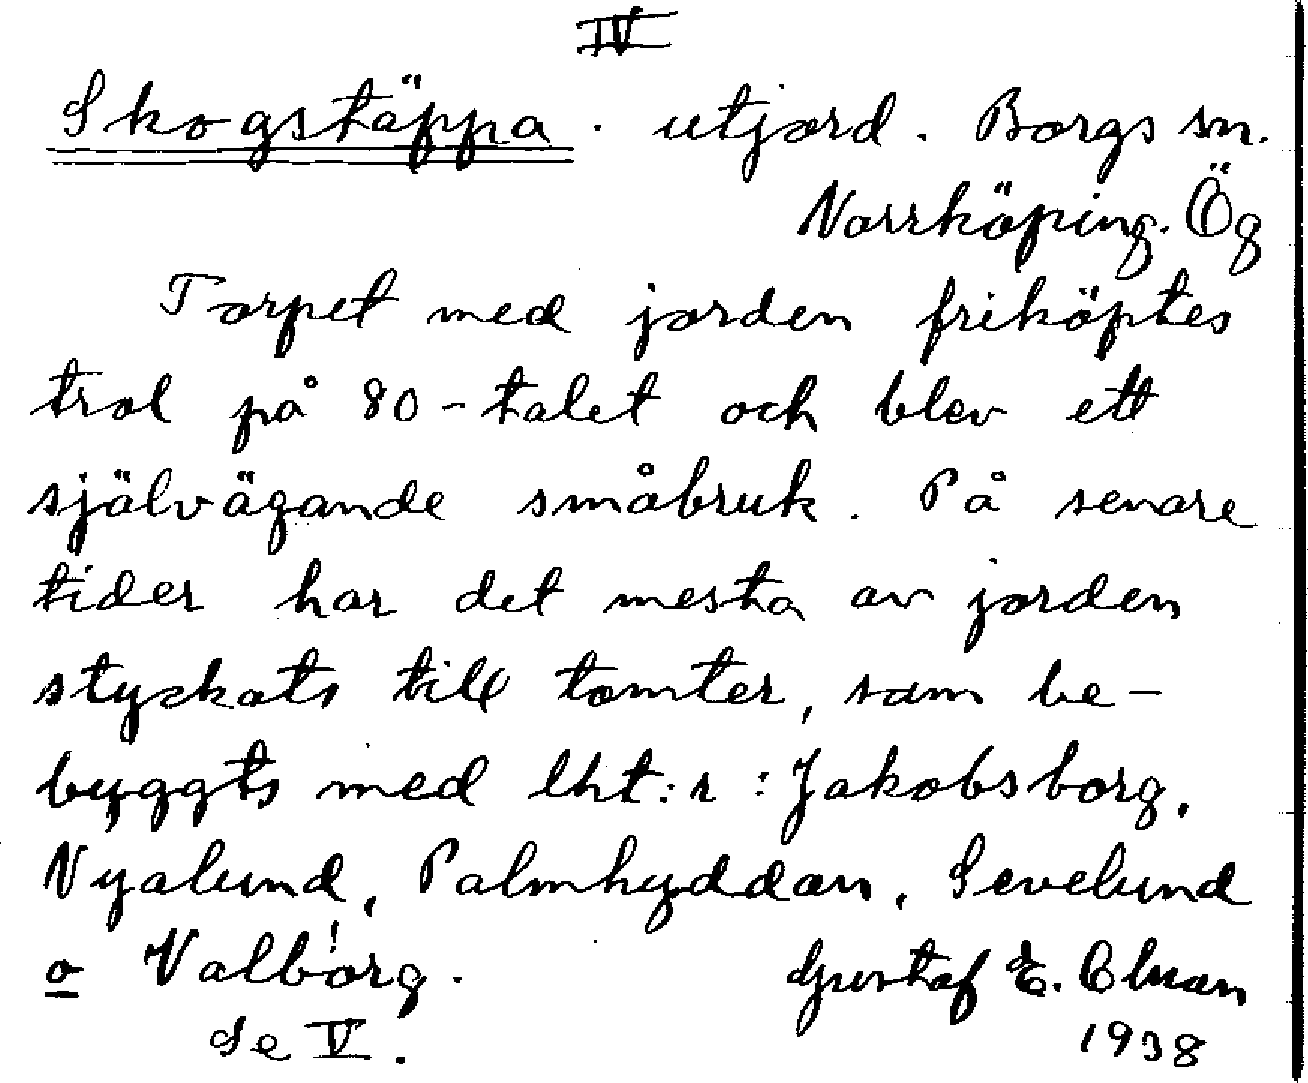 IV
Skogstäppa. utjord. Borgs sn.
Norrköping. Ög
Torpet med jorden friköptes
trol på 80-talet och blev ett
självägande småbruk. På senare
tider har det mesta av jorden
styckats till tomter, som be-
byggts med lht:r: Jakobsborg,
Nyalund, Palmhyddan, Sevelund
o Valborg.
!
Gustaf E.
Se V.
1938